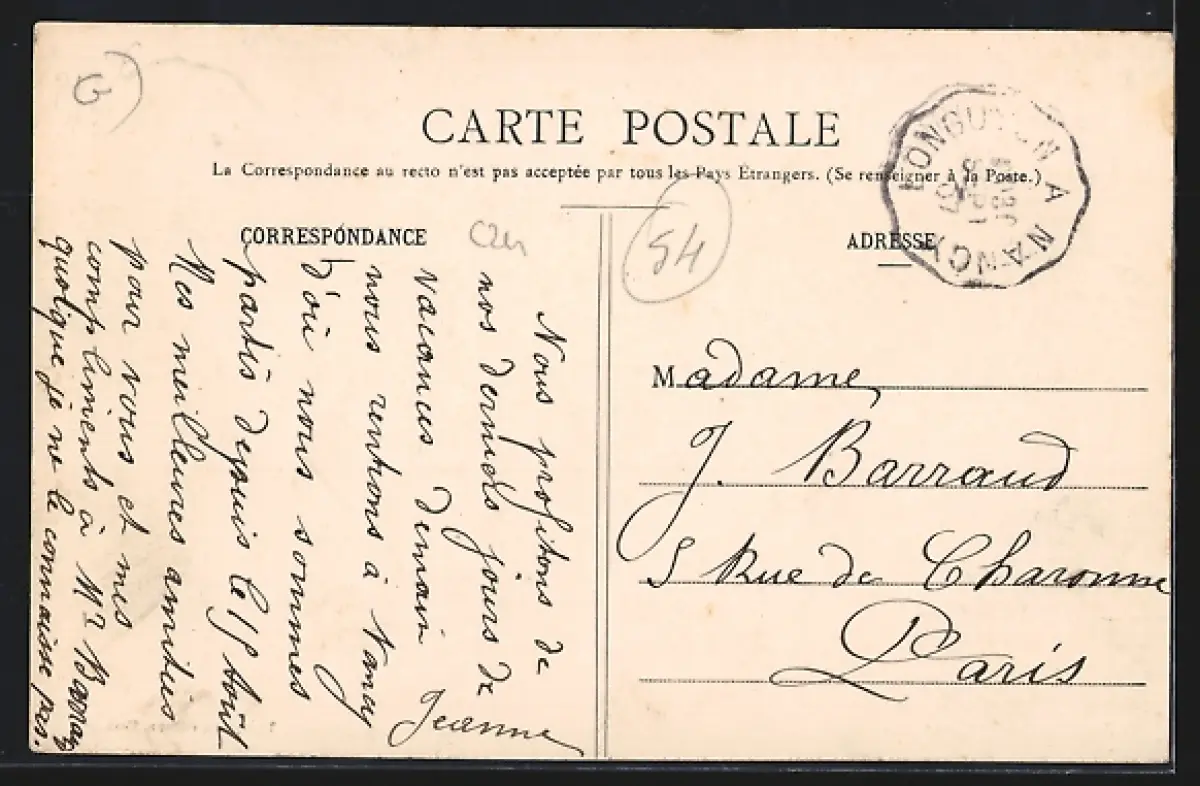 CARTE POSTALE
La Correspondance au recto n'est pas acceptée par tous les Pays Étrangers. (Se renseigner à la Poste.)
CORRESPONDANCE
ADRESSE
LONGUYON A NANCY
07
54
Nous profitons de
nos derniers jours de
vacances demain
nous rentrons à Nancy
d'où nous sommes
partis depuis le 15 Août
Mes meilleures amitiés
pour vous et mes
compliments à Mr Barraud
quoique je ne le connaisse pas.
Jeanne
Madame
J. Barraud
5 Rue de Charonne
Paris